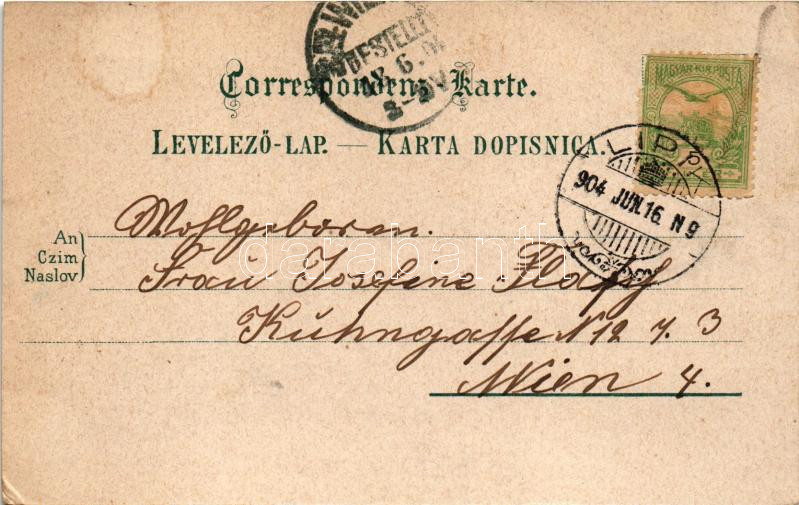 Correspondenz-Karte.
LEVELEZŐ-LAP. — KARTA DOPISNICA.
MAGYAR KIR. POSTA
BESTELLT
18.6.04
LIPPA
904 JUN.16. N 9
An
Czim
Naslov
Wohlgeboren.
Frau Josefine
Kühngasse N 12 7. 3
Wien 4.
darabanth